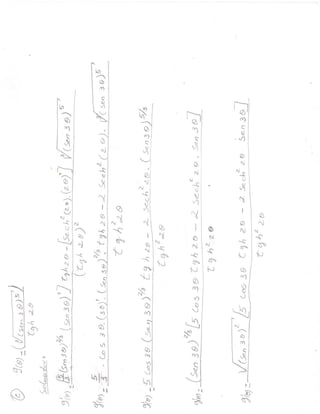 (c) g(θ) = (∛(sen 3θ)⁵) / tgh 2θ
Solución:
g'(θ) = [5/3 (sen 3θ)^2/3 (sen 3θ)'] tgh 2θ - [sech²(2θ).(2θ)'] ∛(sen 3θ)⁵ / (tgh 2θ)²
g'(θ) = 5/3 . cos 3θ.(3θ)'.(sen 3θ)^2/3. tgh 2θ - 2 sech²(2θ). ∛(sen 3θ)⁵ / tgh² 2θ
g'(θ) = 5 cos 3θ (sen 3θ)^2/3 tgh 2θ - 2 sech² 2θ. (sen 3θ)^5/3 / tgh² 2θ
g'(θ) = (sen 3θ)^2/3 [5 cos 3θ tgh 2θ - 2 sech² 2θ. sen 3θ] / tgh² 2θ
g'(θ) = ∛(sen 3θ)² [5 cos 3θ tgh 2θ - 2 sech² 2θ sen 3θ] / tgh² 2θ